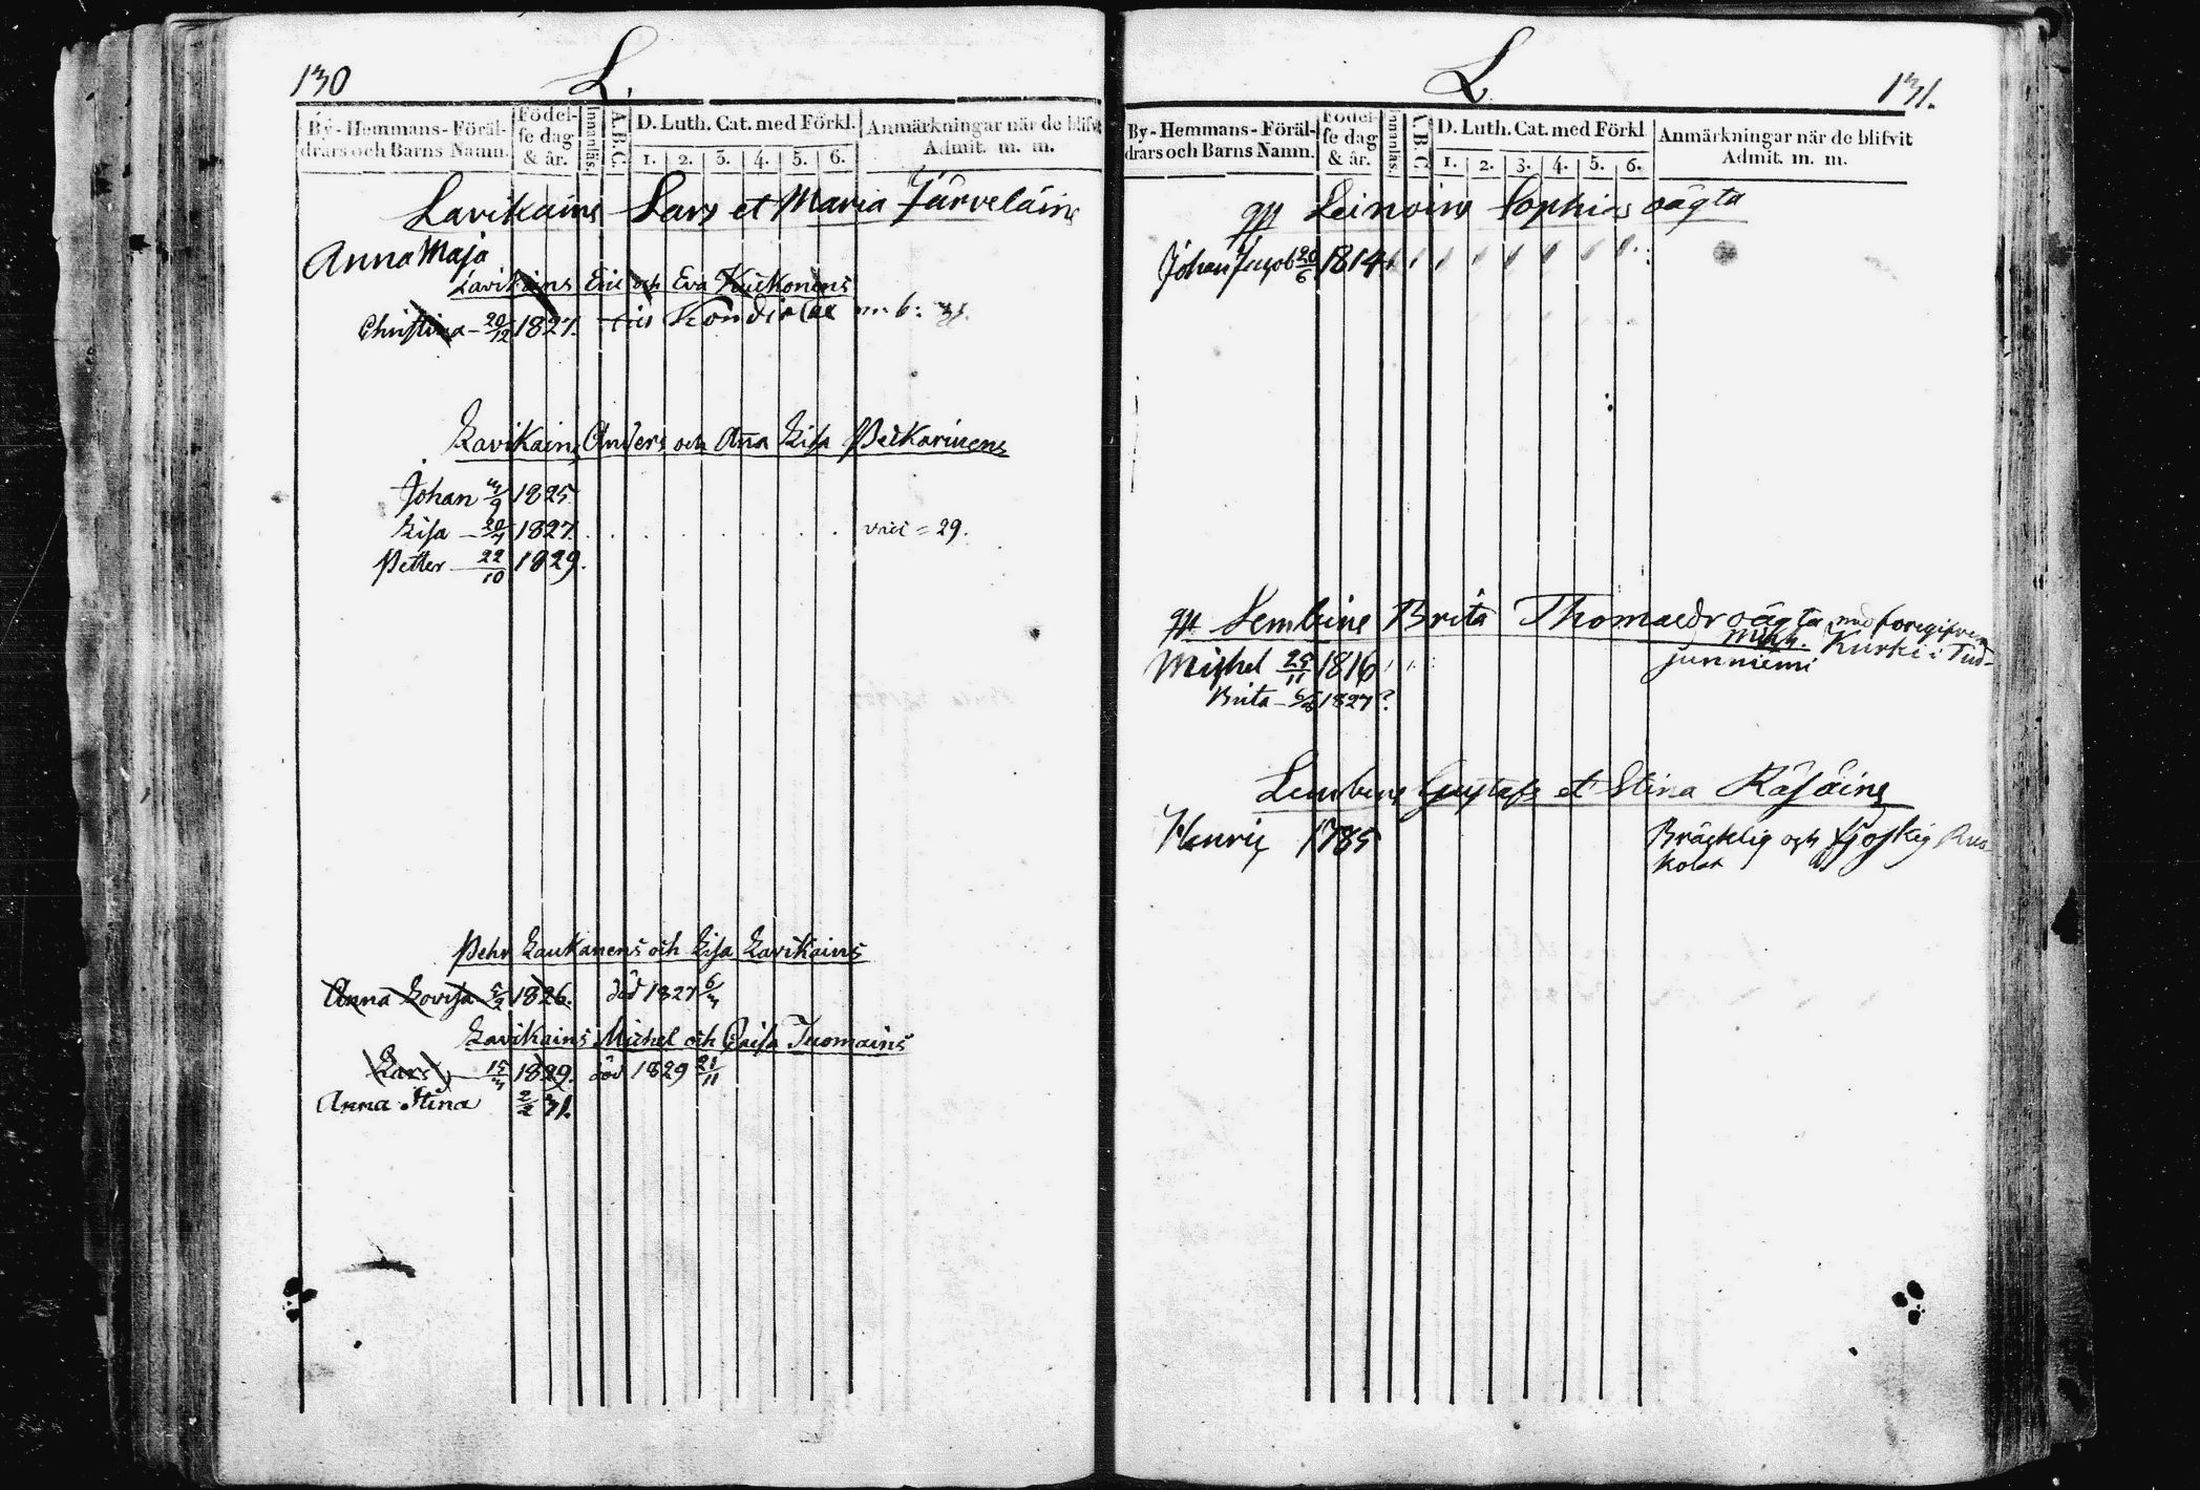 130
L.
By-Hemmans-Föräl-
drars och Barns Namn.
Födel-
se dag
& år.
Innanläs.
A.B.C.
D. Luth. Cat. med Förkl.
1. 2. 3. 4. 5. 6.
Anmärkningar när de blifvit
Admit. m. m.
Lavikains Lars et Maria Järveläins
Anna Maja
Lavikains Eric och Eva Kuikonens
Christina 20/12 1827.
Lavikains Anders och Aña Lisa Pitkarinens
Johan 3/9 1825
Lisa 20/3 1827. vac = 29.
Petter 22/10 1829.
Pehr Laukanens och Lisa Lavikains
Anna Lovisa 5/2 1826. död 1827 6/3
Lavikains Michel och Caisa Tuomains
Lars 15/3 1829. död 1829 21/11
Anna Stina 2/2 31.
L
131.
By-Hemmans-Föräl-
drars och Barns Namn.
Födel-
se dag
& år.
Innanläs.
A.B.C.
D. Luth. Cat. med Förkl
1. 2. 3. 4. 5. 6.
Anmärkningar när de blifvit
Admit. m. m.
Leinoins Sophias oägta
Johan Jacob 20/6 1814
Lembins Brita Thomaedr oägta med föregifven
Mich. Kurki i Tud-
junniemi
Michel 25/11 1816
Brita 1827?
Lembins Gustafs et Stina Räsäins
Henric 1785 Bräcklig och